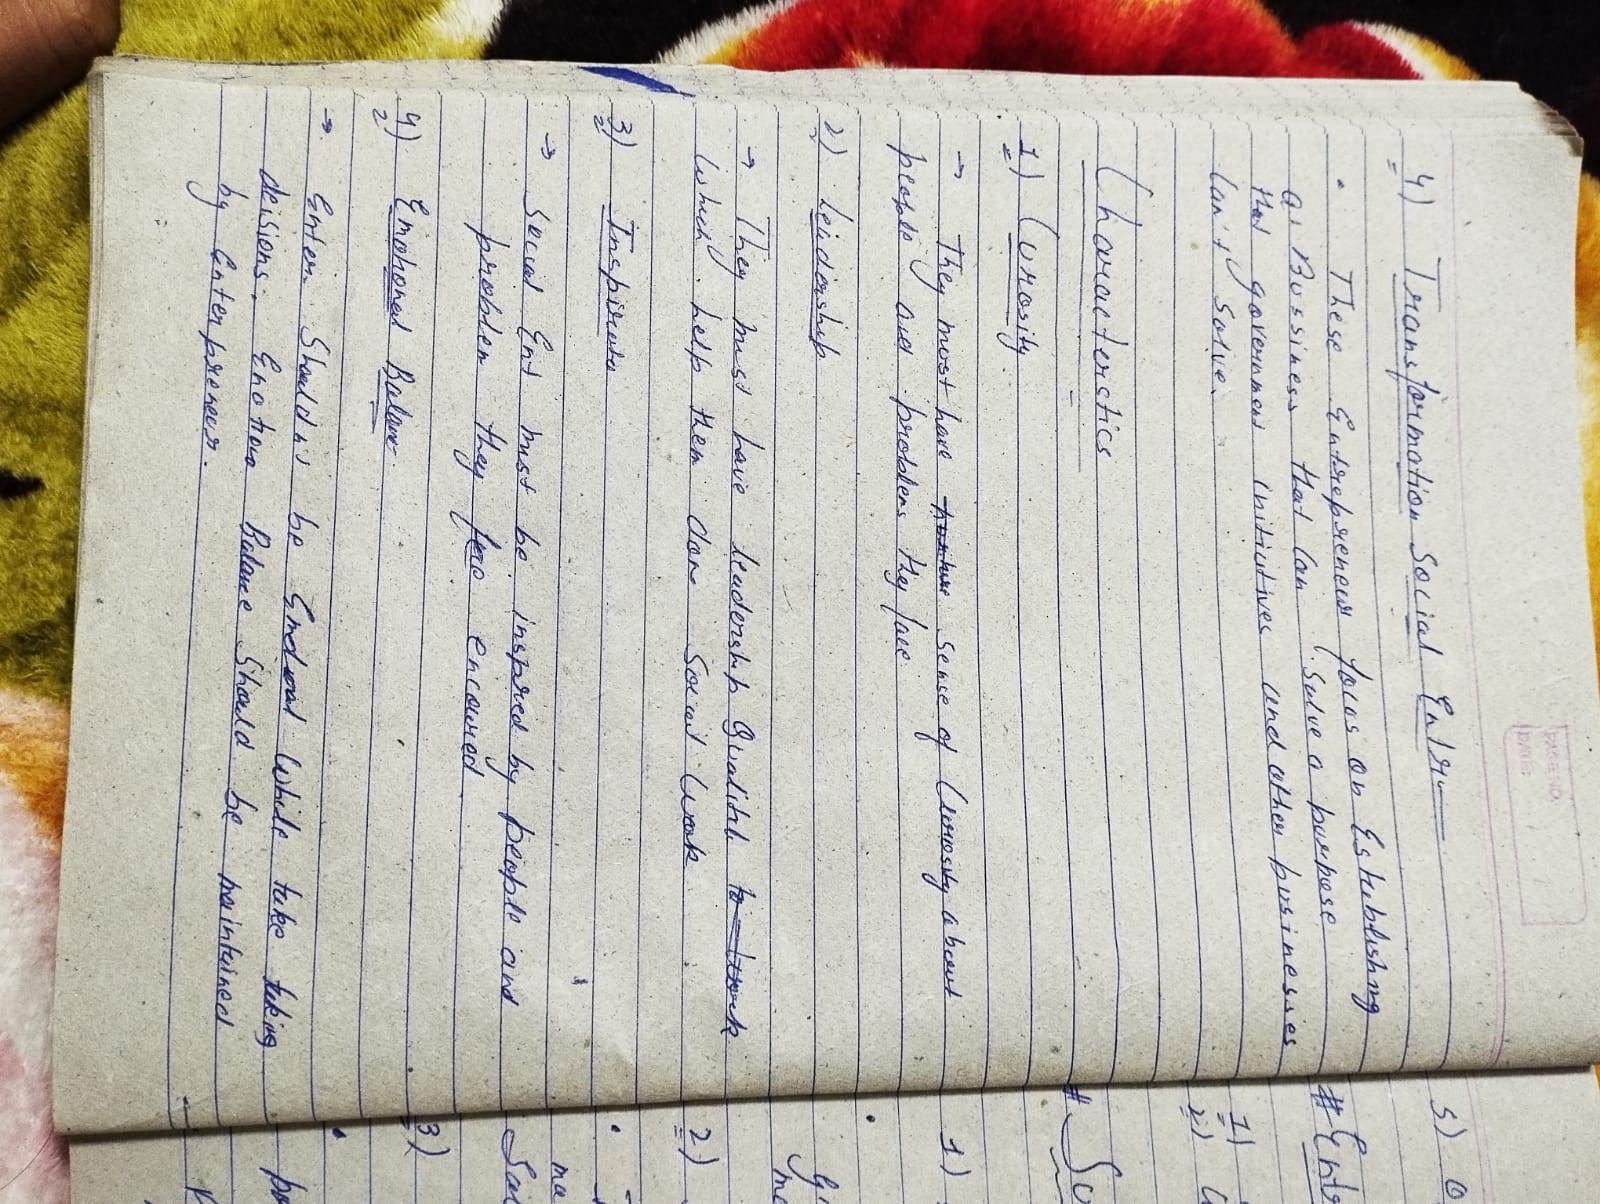 PAGE NO.
DATE:
4) Transformation Social Entr
• These Entrepreneur focus on Establishing
a Bussiness that can solve a purpose
that government initives and other businesses
can't solve.
Characterstics
1) Curosity
→ They must have sense of Curosity about
people and problems they face
2) Leadership
→ They must have leadership Qualitit to work
which help them don Social Work
3) Inspirate
→ Social Ent must be inspred by people and
problem they face encoured
4) Emotional Balance
→ Enter. Should n't be Emotional while take taking
deisions. Emotion Balance Should be maintained
by Enterpreneer.
5)
# Ent
1)
2)
# Su
1)
2)
3)